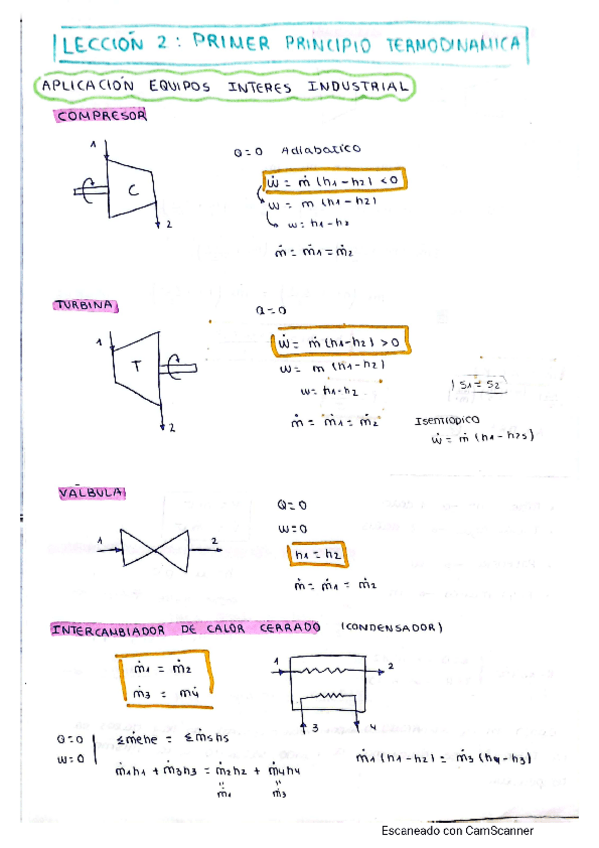 LECCIÓN 2: PRIMER PRINCIPIO TERMODINÁMICA
APLICACIÓN EQUIPOS INTERES INDUSTRIAL
COMPRESOR
1
C
2
Q=0 Adiabatico
ẇ = ṁ (h1-h2) <0
w = m (h1-h2)
w = h1-h2
ṁ = ṁ1 = ṁ2
TURBINA
1
T
2
Q=0
ẇ = ṁ (h1-h2) >0
w = m (h1-h2)
w = h1-h2
ṁ = ṁ1 = ṁ2
S1 = S2
Isentrópico
ẇ = ṁ (h1-h2s)
VÁLBULA
1
2
Q=0
w=0
h1 = h2
ṁ = ṁ1 = ṁ2
INTERCAMBIADOR DE CALOR CERRADO (CONDENSADOR)
ṁ1 = ṁ2
ṁ3 = ṁ4
1
2
3
4
Q=0
w=0
Σṁehe = Σṁshs
ṁ1h1 + ṁ3h3 = ṁ2h2 + ṁ4h4
"
"
ṁ1
ṁ3
ṁ1 (h1-h2) = ṁ3 (h4-h3)
Escaneado con CamScanner